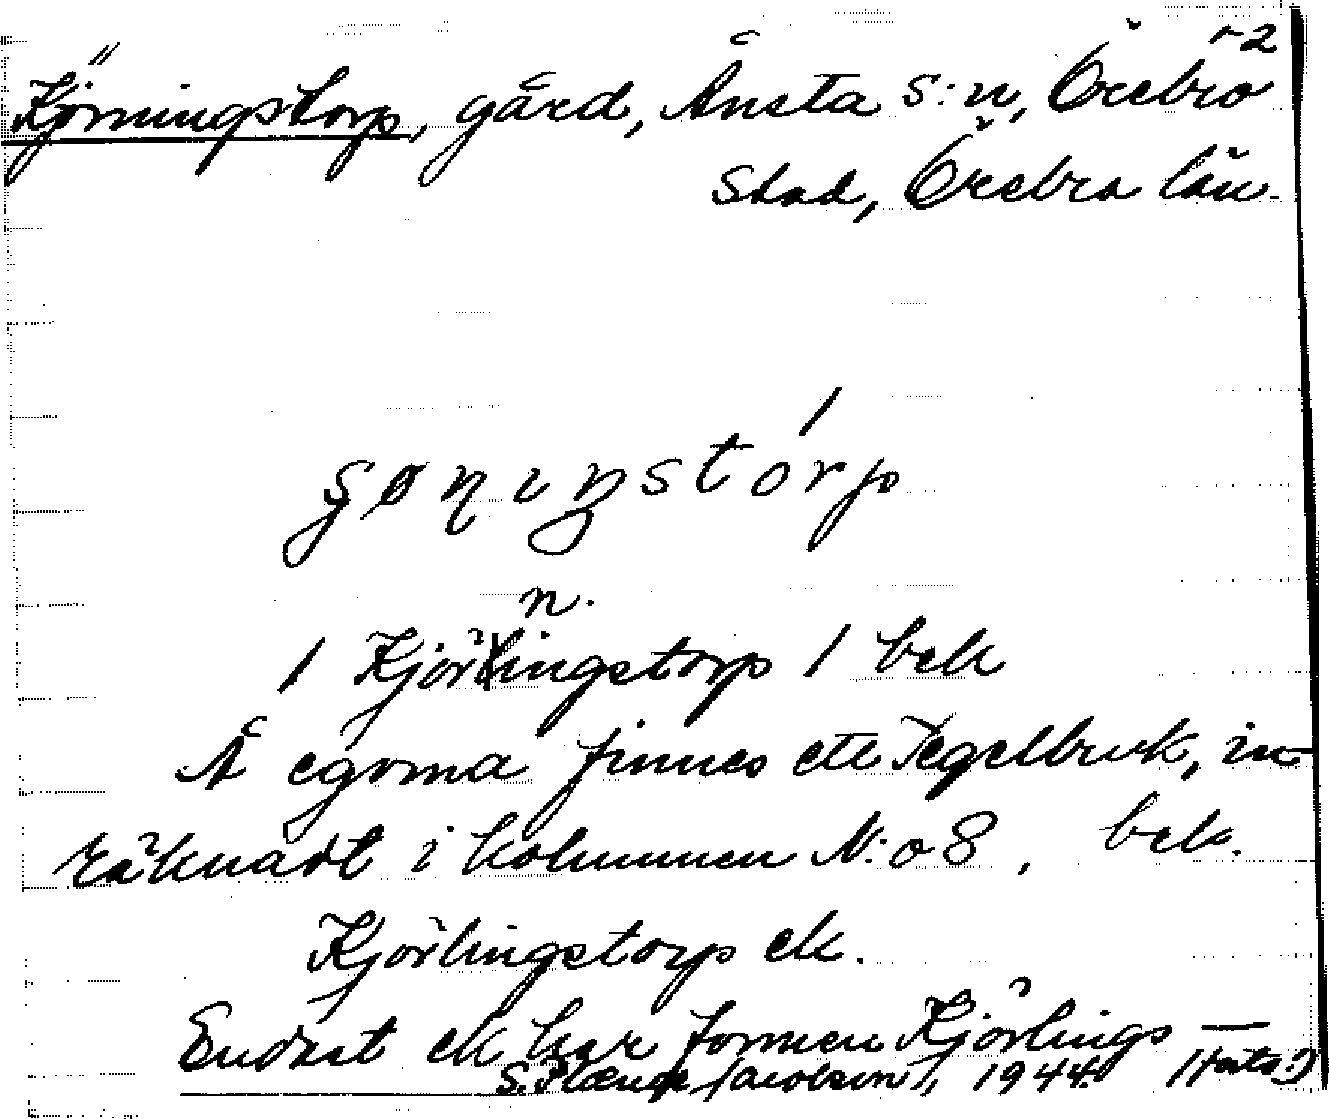 ~2
Kjörningstorp, gård, Ånsta s:n, Örebro
stad, Örebro län.
n.
1 Kjörlingstorp 1 bek
Å egorna finnes ett Tegelbruk, in-
räknadt i kolumnen N:o 8, bek.
Kjörlingstorp ek.
Endast ek har formen Kjörlings —
1944. (forts:)